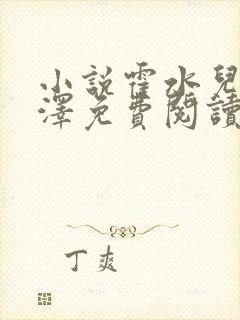 小說霍水兒
澤免費閱讀
丁爽